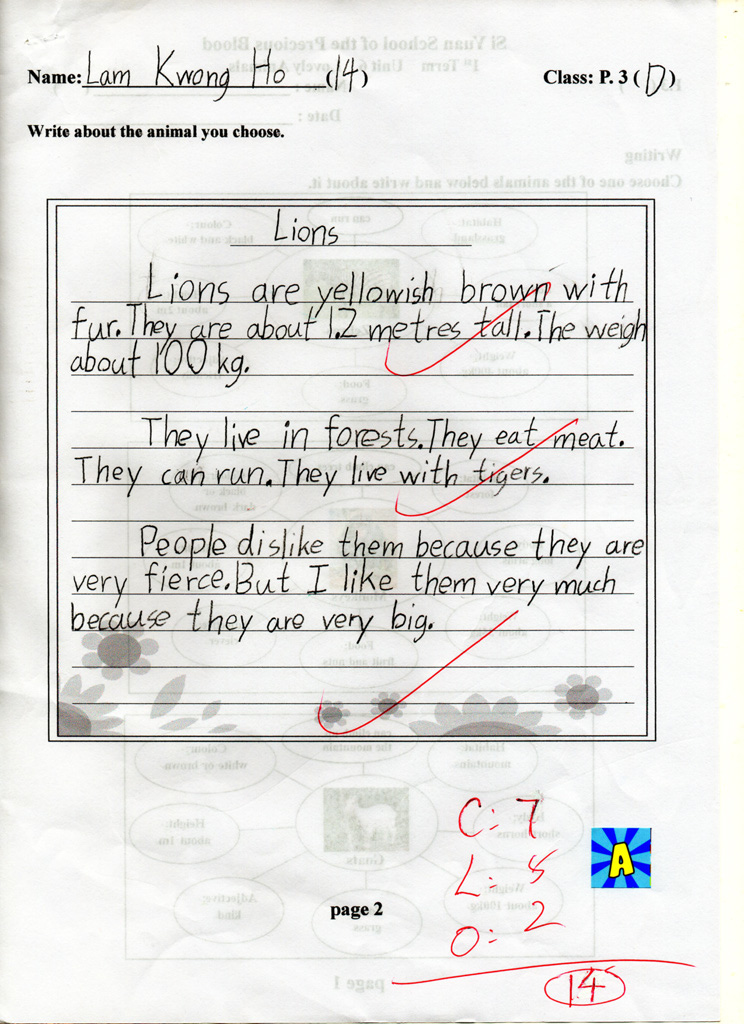 Name: Lam Kwong Ho (14) Class: P. 3 (D)
Write about the animal you choose.
Lions
Lions are yellowish brown with
fur. They are about 1.2 metres tall. The weigh
about 100 kg.
They live in forests. They eat meat.
They can run. They live with tigers.
People dislike them because they are
very fierce. But I like them very much
because they are very big.
C: 7
L: 5
O: 2
14
A
page 2